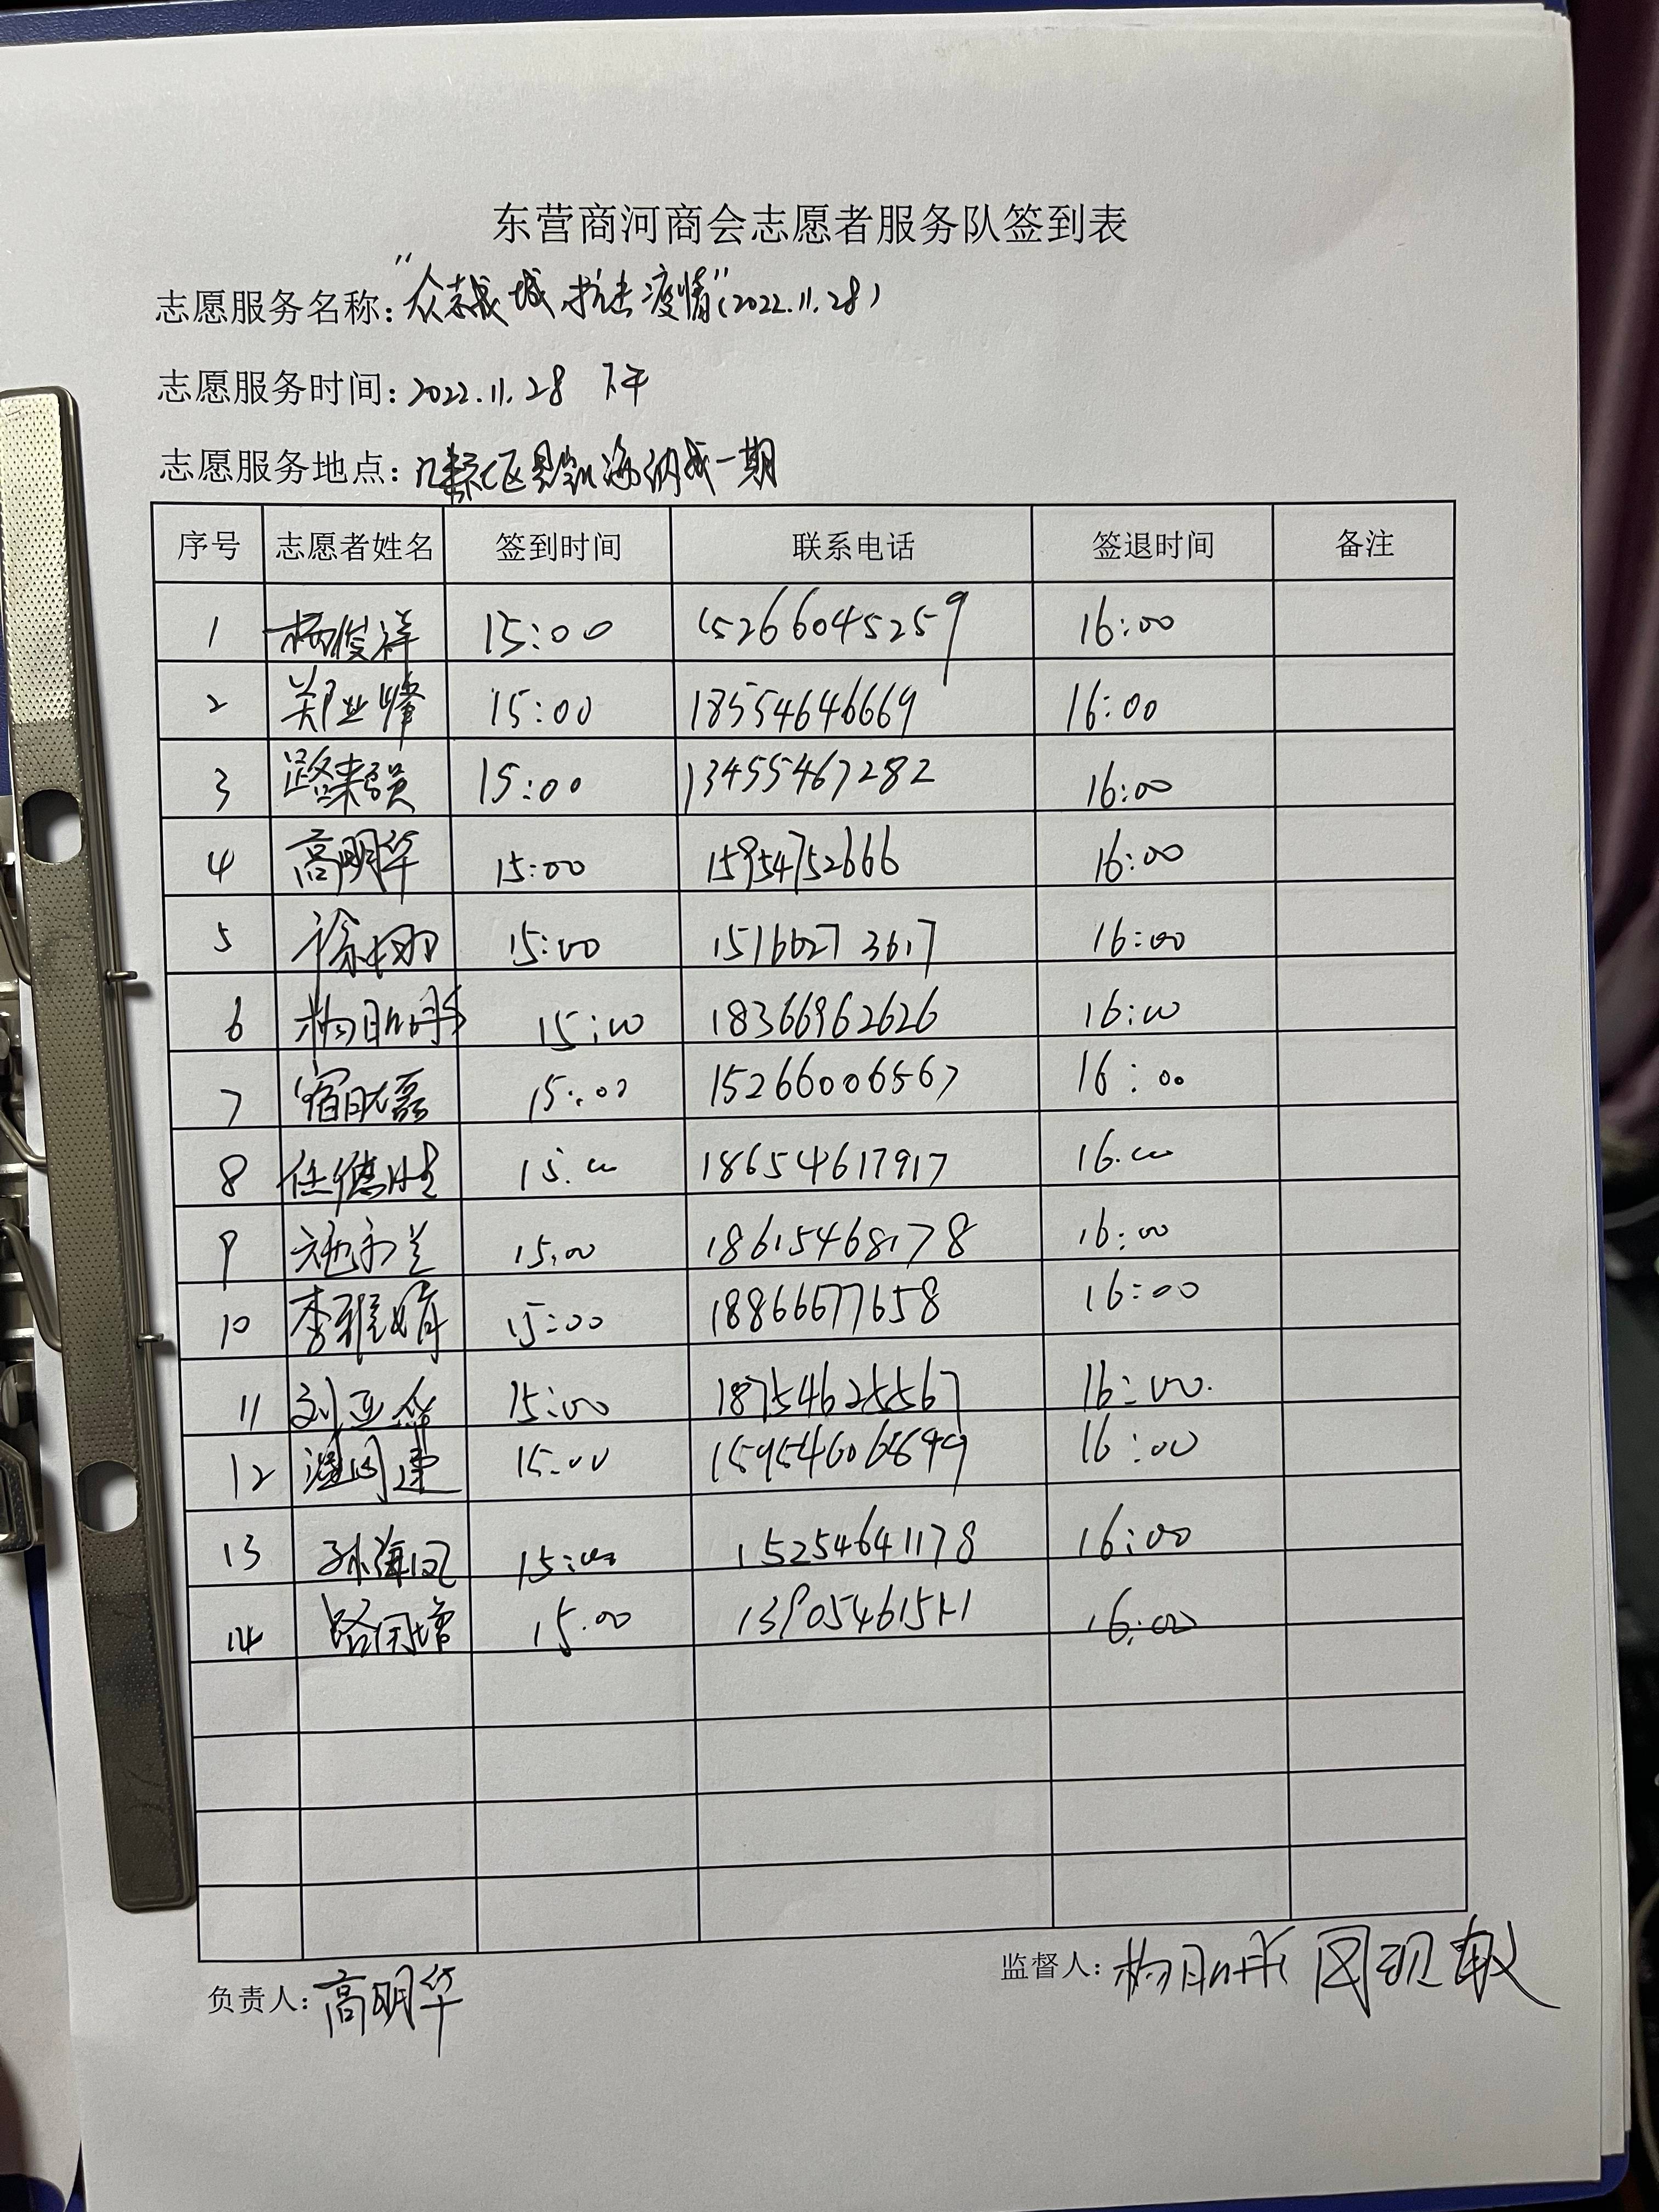 东营商河商会志愿者服务队签到表
志愿服务名称:“众志成城 抗击疫情”(2022.11.28)
志愿服务时间:2022.11.28 下午
志愿服务地点: 海纳城一期
序号 志愿者姓名 签到时间 联系电话 签退时间 备注
1 杨俊祥 15:00 15266045259 16:00
2 郑业峰 15:00 18554646669 16:00
3 路来员 15:00 13455467282 16:00
4 高明华 15:00 15954752666 16:00
5 徐娜 15:00 15166273617 16:00
6 杨 15:00 18366962626 16:00
7 宿 磊 15:00 15266006567 16:00
8 任德胜 15:00 18654617917 16:00
9 15:00 18615468178 16:00
10 李雅婧 15:00 18866677658 16:00
11 刘亚 15:00 18754625567 16:00
12 15:00 16:00
13 孙海凤 15:00 15254641178 16:00
14 路国增 15:00 16:00
负责人:高明华
监督人:杨